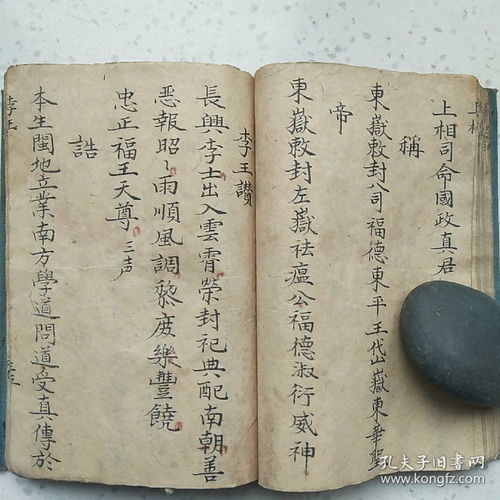 上相司命國政真君
稱
東嶽敕封公司福德東平王岱嶽東華聖
帝
東嶽敕封左嶽祛瘟公福德淑衍威神
李王讚
長興李士出入雲霄榮封祀典配南朝善
惡報昭〻雨順風調黎庶樂豐饒
忠正福王天尊 三声
誥
本生閩地立業南方學道問道受真傳於
李王
孔夫子旧书网
www.kongfz.com